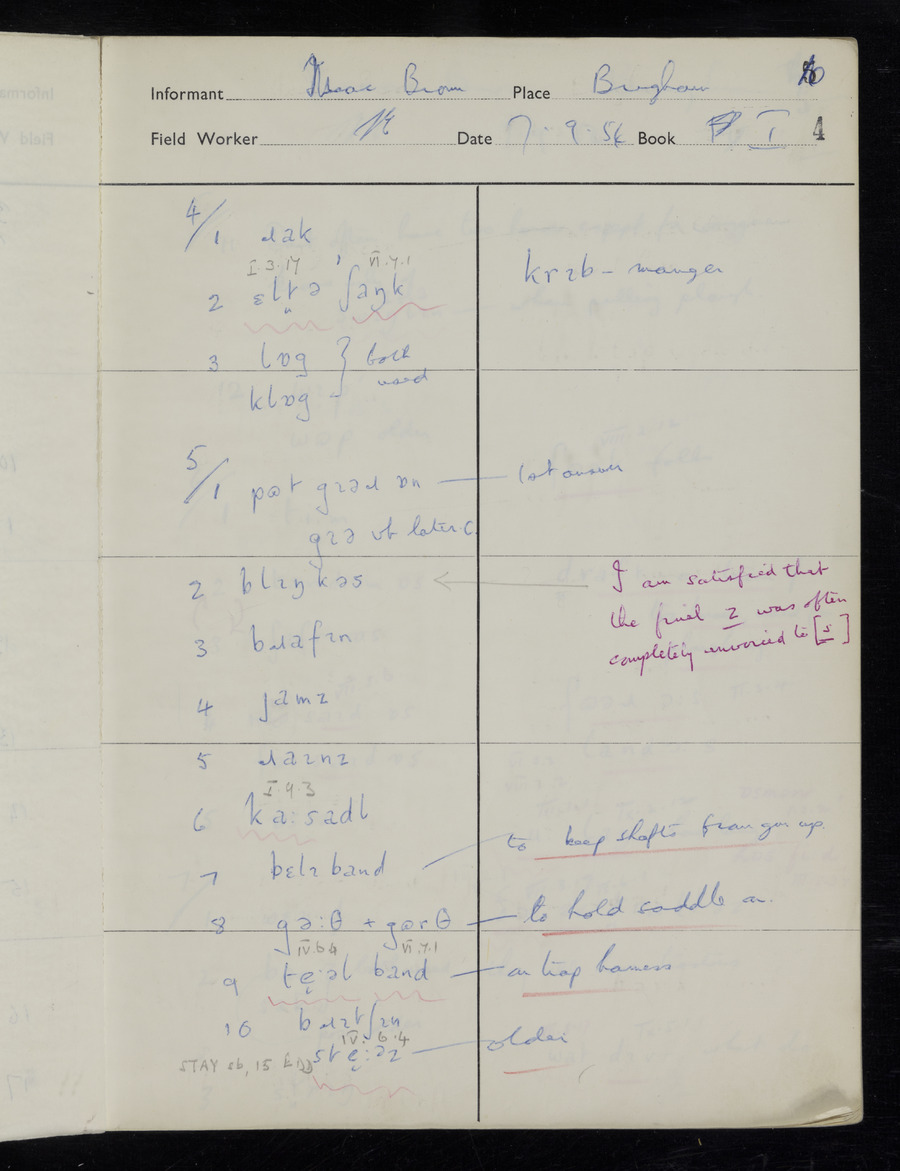 Informant Isaac Brown Place Brigham
Field Worker Date 7.9.54 Book I 4
4/1 ɹak
I.3.17 VI.7.1
2 ɛltə ʃaŋk
3 lɒg } both
klɒg used
krɪb - manger
5/1 gɪəɹ ɒn — 1st answer
gɪə vb later C.
2 blɪŋkəs
I am satisfied that
the final z was often
completely unvoiced to [s]
3 bɹafɪn
4 jamz
5 ɹaɪnz
I.4.3
6 ka:sadl
7 bɛlɪ band to keep shafts from gin up
8 gə:θ + gɵrθ — to hold saddle on.
IV.6.4 VI.7.1
9 te̞:əl band — on trap harness
10 bɹɪtʃɪn
IV.6.4
STAY sb, 15 EDD ste̞:əz — older